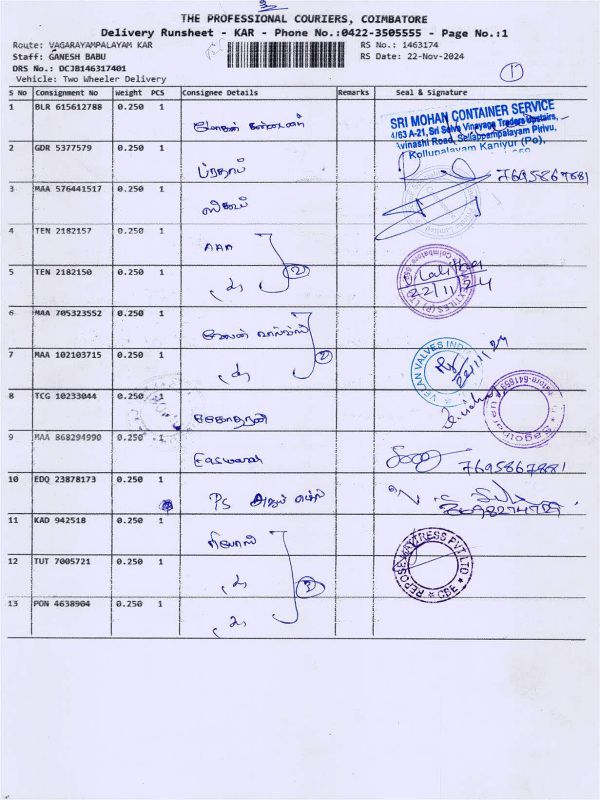 THE PROFESSIONAL COURIERS, COIMBATORE
Delivery Runsheet - KAR - Phone No.:0422-3505555 - Page No.:1
Route: VAGARAYAMPALAYAM KAR
RS No.: 1463174
Staff: GANESH BABU
RS Date: 22-Nov-2024
DRS No.: DCJB146317401
Vehicle: Two Wheeler Delivery
1
S No Consignment No Weight PCS Consignee Details Remarks Seal & Signature
1 BLR 615612788 0.250 1
SRI MOHAN CONTAINER SERVICE
4/63 A-21, Sri Selva Vinayaga Traders Upstairs,
Avinashi Road, Sellappampalayam Pirivu,
Kollupalayam Kaniyur (Po),
2 GDR 5377579 0.250 1 பிரதாப் 7695867881
3 MAA 576441517 0.250 1
4 TEN 2182157 0.250 1 AAA
5 TEN 2182150 0.250 1 2 Lalitha
22/11/24
6 MAA 705323552 0.250 1 வேலன் வால்வ்ஸ்
7 MAA 102103715 0.250 1 2 VELAN VALVES INDIA
8 TCG 10233044 0.250 1
9 MAA 868294990 0.250 1 Easwaran 7695867881
10 EDQ 23878173 0.250 1 PS
11 KAD 942518 0.250 1 ரிபோஸ்
12 TUT 7005721 0.250 1 3 REPOSE MATTRESS PVT LTD * CBE *
13 PON 4638904 0.250 1